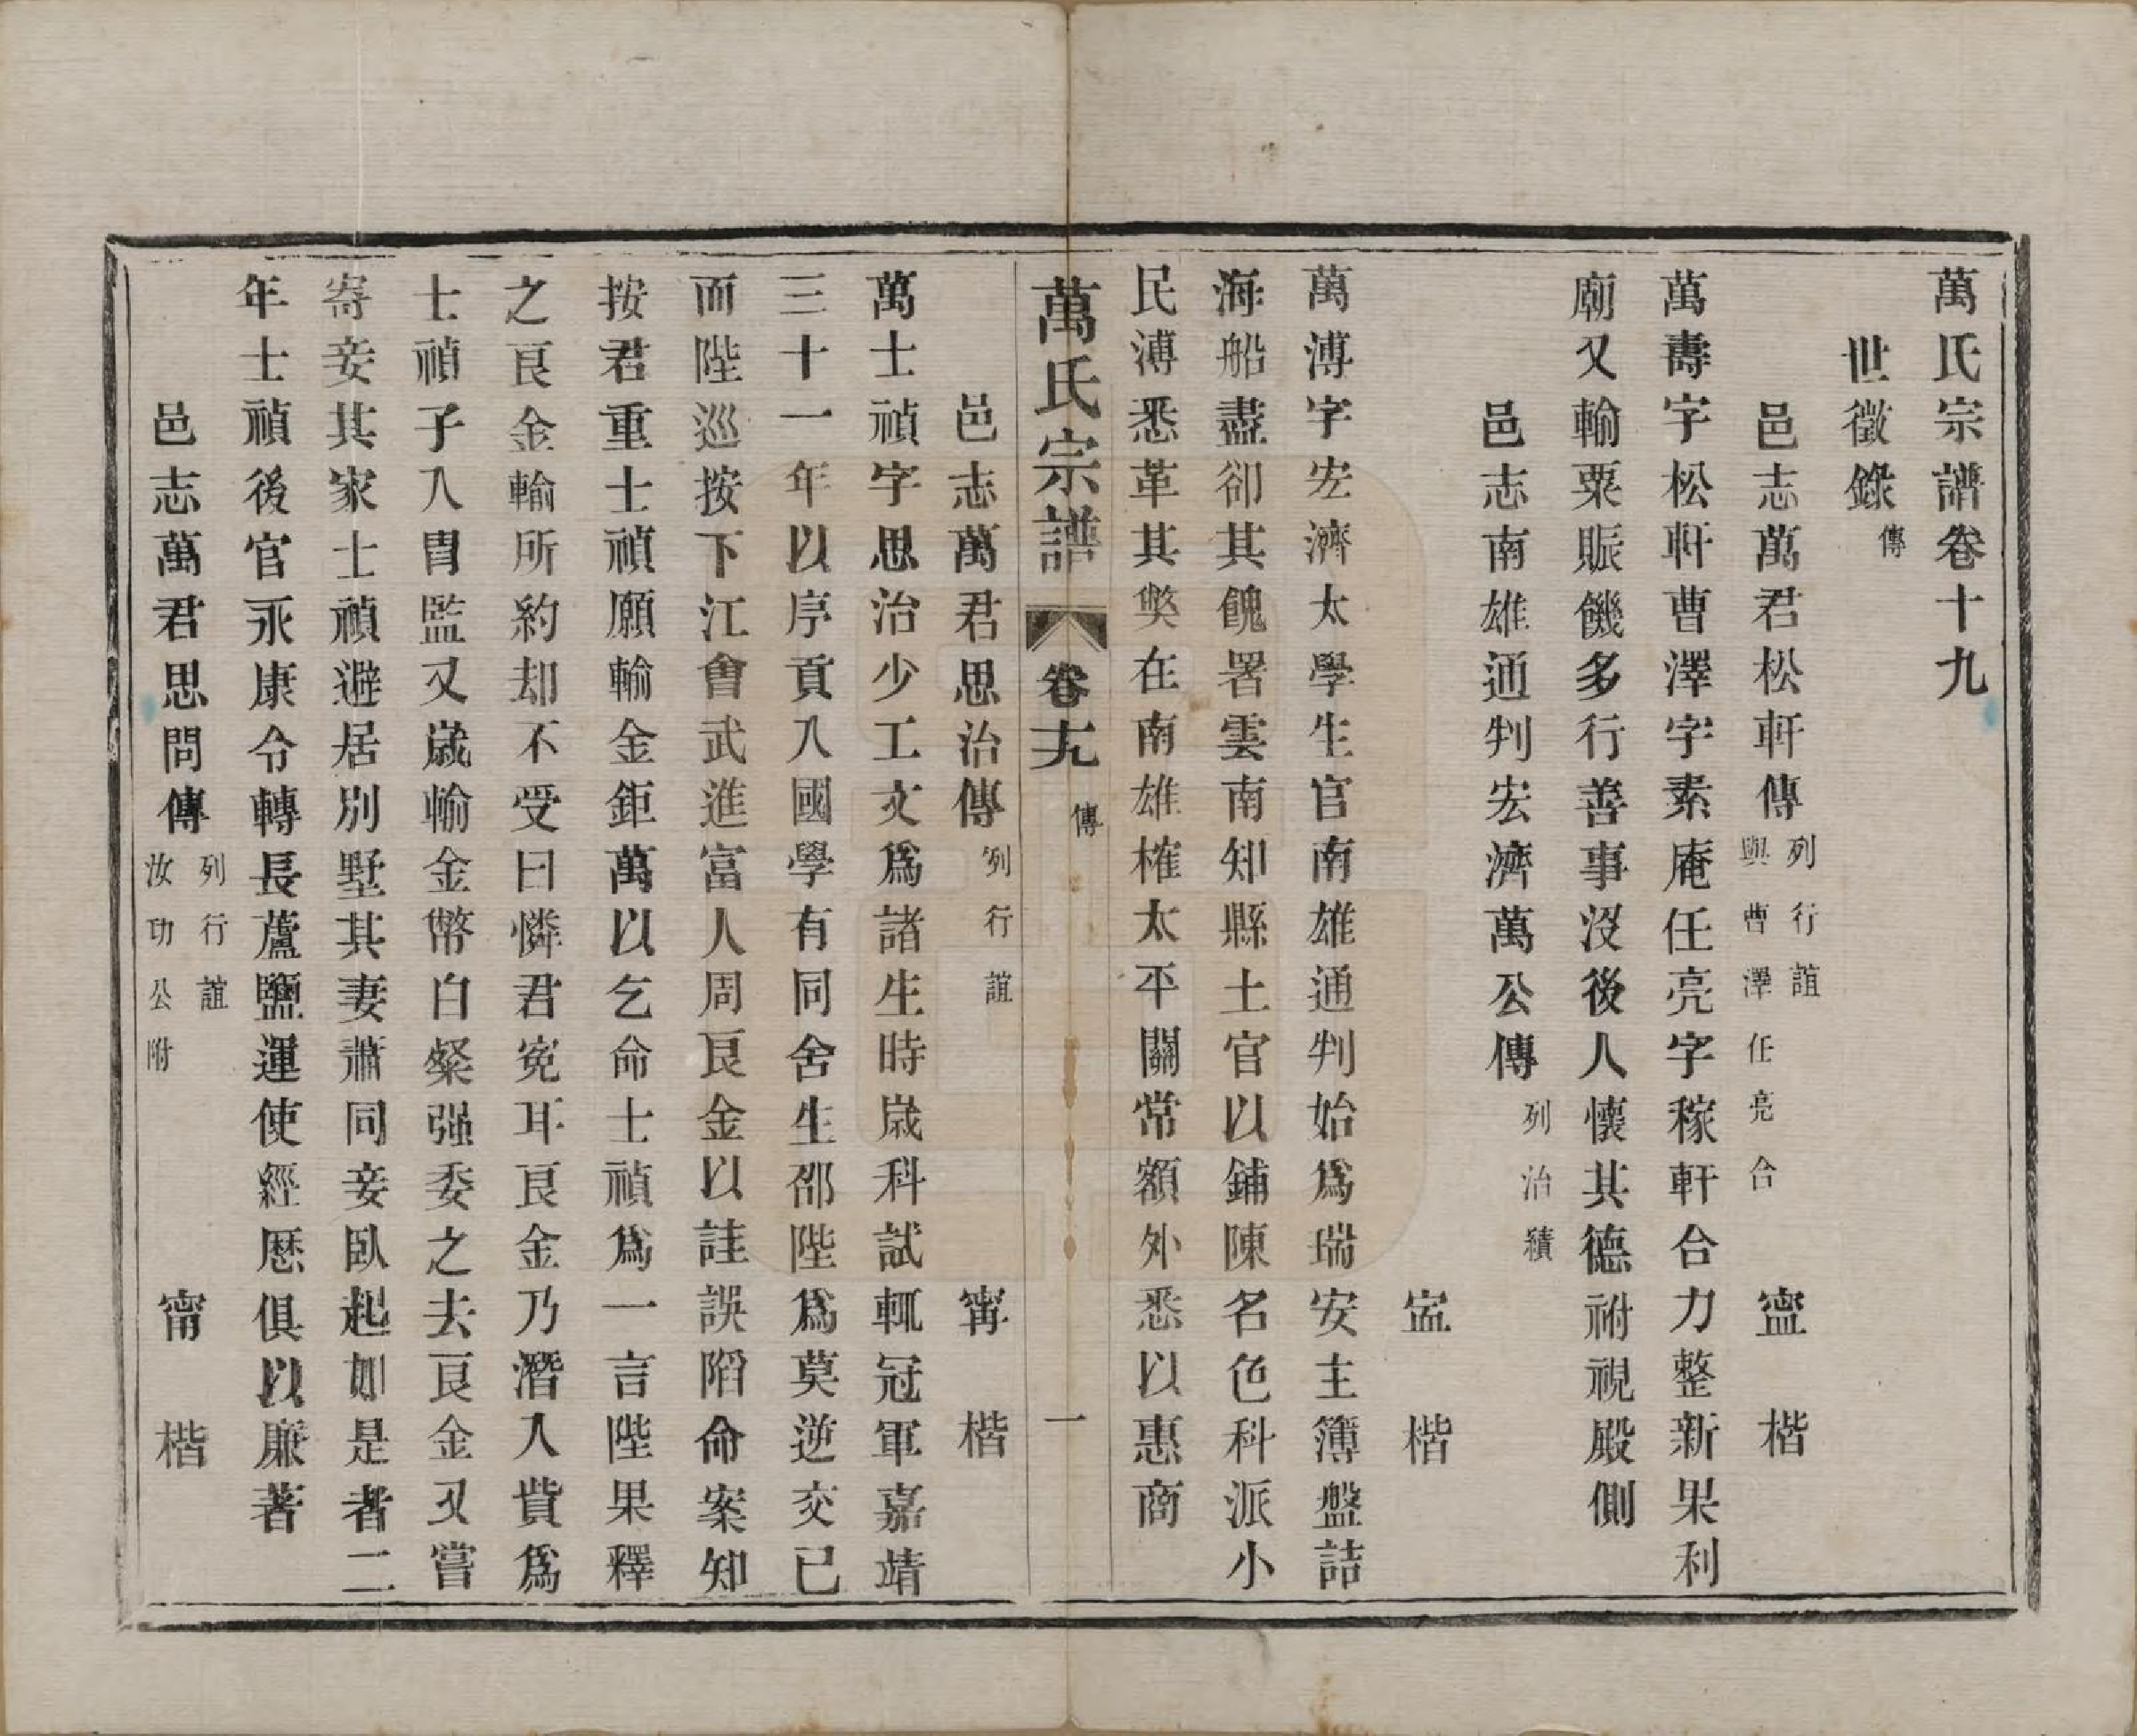 萬氏宗譜卷十九
世徵錄傳
邑志萬君松軒傳列行誼與曹澤任亮合 寍楷
萬壽字松軒曹澤字素庵任亮字稼軒合力整新果利
廟又輸粟賑饑多行善事沒後人懷其德祔視殿側
邑志南雄通判宏濟萬公傳列治績
寍楷
萬溥字宏濟太學生官南雄通判始爲瑞安主簿盤詰
海船盡卻其餽署雲南知縣土官以鋪陳名色科派小
民溥悉革其獘在南雄榷太平關常額外悉以惠商
萬氏宗譜 卷十九 傳 一
邑志萬君思治傳列行誼 甯楷
萬士禎字思治少工文爲諸生時歲科試輒冠軍嘉靖
三十一年以序貢入國學有同舍生邵陛爲莫逆交已
而陛巡按下江會武進富人周艮金以詿誤陷命案知
按君重士禎願輸金鉅萬以乞命士禎爲一言陛果釋
之艮金輸所約却不受曰憐君寃耳艮金乃潛入貲爲
士禎子入胄監又歲輸金幣白粲强委之去艮金又嘗
寄妾其家士禎避居別墅其妻蕭同妾臥起如是者二
年士禎後官永康令轉長蘆鹽運使經歷俱以廉著
邑志萬君思問傳列行誼汝功公附 甯楷